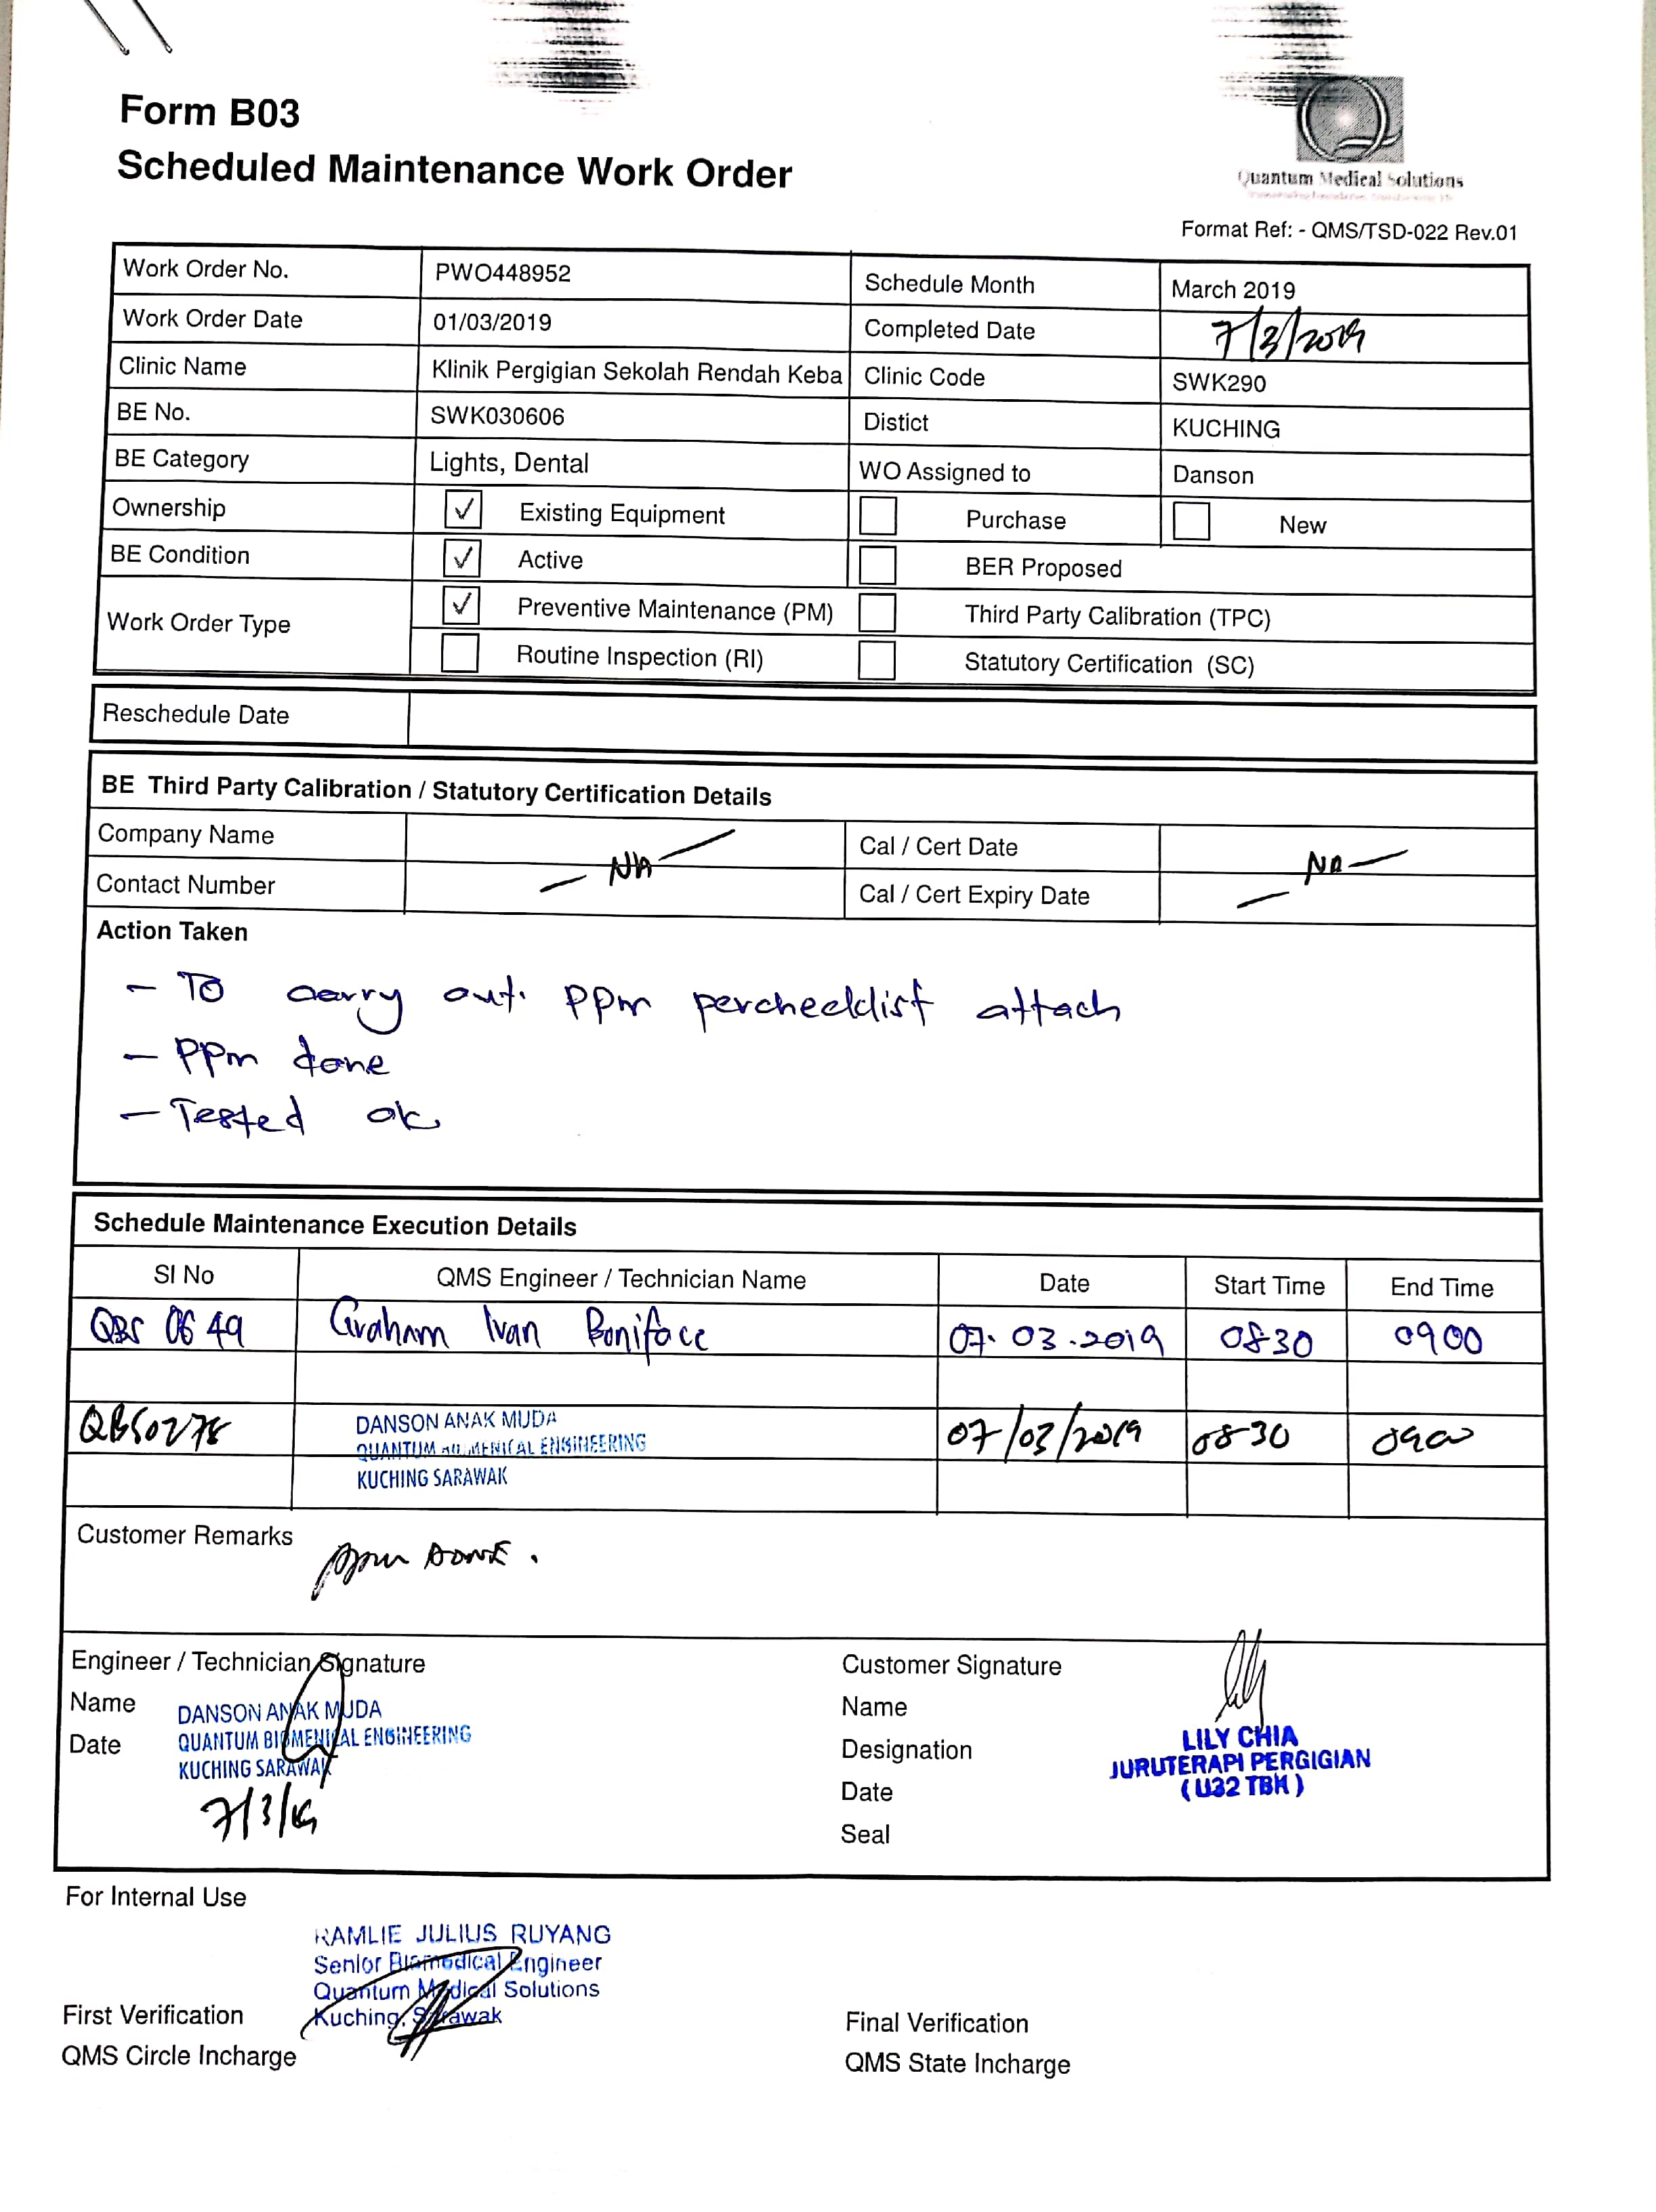 Form B03
Scheduled Maintenance Work Order
Quantum Medical Solutions
Format Ref: - QMS/TSD-022 Rev.01
Work Order No. PWO448952 Schedule Month March 2019
Work Order Date 01/03/2019 Completed Date 7/3/2019
Clinic Name Klinik Pergigian Sekolah Rendah Keba Clinic Code SWK290
BE No. SWK030606 Distict KUCHING
BE Category Lights, Dental WO Assigned to Danson
Ownership ✓ Existing Equipment Purchase New
BE Condition ✓ Active BER Proposed
Work Order Type ✓ Preventive Maintenance (PM) Third Party Calibration (TPC)
Routine Inspection (RI) Statutory Certification (SC)
Reschedule Date
BE Third Party Calibration / Statutory Certification Details
Company Name Cal / Cert Date
— NA — — NA —
Contact Number Cal / Cert Expiry Date
Action Taken
- To carry out. PPm perchecklist attach
- PPm done
- Tested ok
Schedule Maintenance Execution Details
SI No QMS Engineer / Technician Name Date Start Time End Time
QBS 0649 Graham Ivan Boniface 07.03.2019 0830 0900
QBS0278 DANSON ANAK MUDA 07/03/2019 0830 0900
QUANTUM BIOMENICAL ENGINEERING
KUCHING SARAWAK
Customer Remarks ppm DONE.
Engineer / Technician Signature Customer Signature
Name DANSON ANAK MUDA Name
Date QUANTUM BIOMENICAL ENGINEERING LILY CHIA
KUCHING SARAWAK Designation JURUTERAPI PERGIGIAN
7/3/19 Date (U32 TBK)
Seal
For Internal Use
RAMLIE JULIUS RUYANG
Senior Biomedical Engineer
Quantum Medical Solutions
Kuching, Sarawak
First Verification Final Verification
QMS Circle Incharge QMS State Incharge